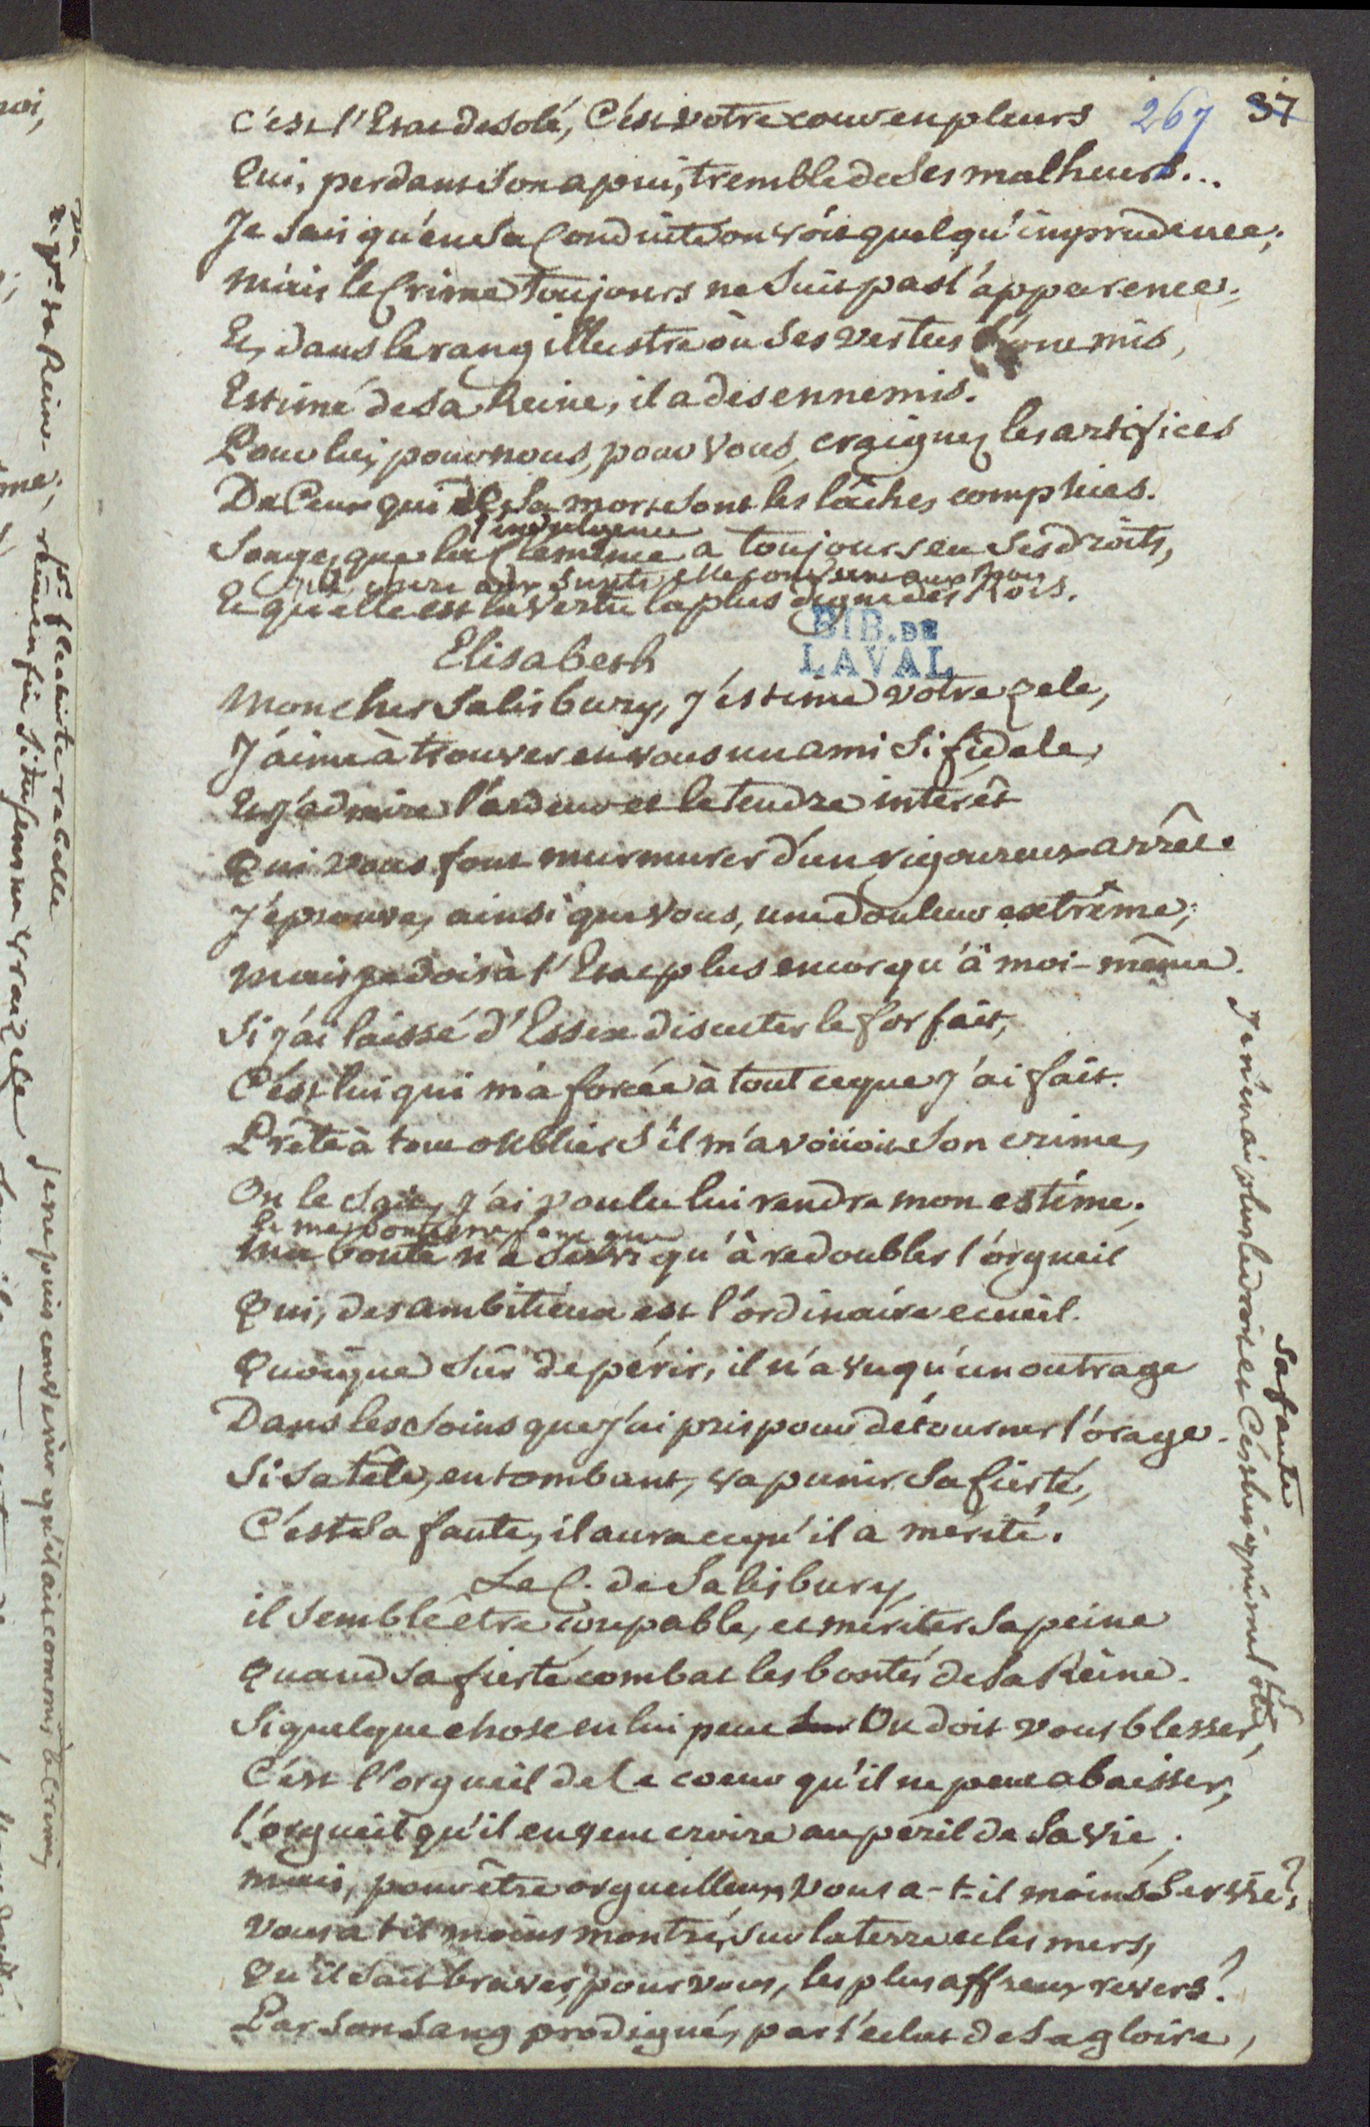 267 37
C'est l'Etat desolé, C'est votre cour en pleurs
Qui, perdant son apui, tremble de Ses malheurs...
Je Sais qu'en Sa Conduite on voit quelqu'imprudence;
Mais le Crime toujours ne Suit pas l'apparence;
Et, dans le rang illustre où Ses vertus l'ont mis,
Estimé de Sa Reine, il a des ennemis.
Pour lui, pour nous, pour vous, craignez les artifices
De Ceux qui de Sa mort Sont les lâches complices.
l'indulgence
Songez que la Clemence a toujours eu Ses droits,
elle convient aux Rois
Et qu'elle est la vertu la plus digne des Rois.
BIB. DE
LAVAL
Elisabeth
Mon cher Salisbury, j'estime votre zele,
J'aime à trouver en vous un ami Si fidele,
Et j'admire l'ardeur et le tendre intérêt
Qui vous font murmurer d'un rigoureux arrêt.
J'éprouve, ainsi que vous, une douleur extrême;
Mais je dois à l'Etat plus encor qu'à moi-même.
Si j'ai laissé d'Essex discuter le forfait,
C'est lui qui m'a forcée à tout ce que j'ai fait.
Prête à tout oublier S'il m'avoüoit Son crime,
On le Sait, j'ai voulu lui rendre mon estime;
Et mes bontés n'ont fait que
Ma bonté n'a Servi qu'à redoubler l'orgueil
Qui, des ambitieux est l'ordinaire ecueil.
Quoique Sûr de périr, il n'a vu qu'un outrage
Dans les Soins que j'ai pris pour détourner l'orage.
Si Sa tête, en tombant, va punir Sa fierté,
C'est Sa faute, il aura ce qu'il a mérité.
Le C. de Salisbury
il Semble être coupable, et mériter Sa peine
Quand Sa fierté combat les bontés de Sa Reine.
Si quelque chose en lui peut Ou doit vous blesser,
C'est l'orgueil de Ce coeur qu'il ne peut abaisser,
l'orgueil qu'il en veut croire au péril de Sa vie;
Mais, pour être orgueilleux, vous a-t-il moins Servie?
Vous a t il moins montré, Sur la terre et les mers,
Qu'il Sait braver, pour vous, les plus affreux revers?
Par Son Sang prodigué, par l'eclat de Sa gloire,
Sa faute
Je n'en ai plus le droit et C'est lui qui me l'ôte,
je ne puis convenir qu'il ait commis le crime,